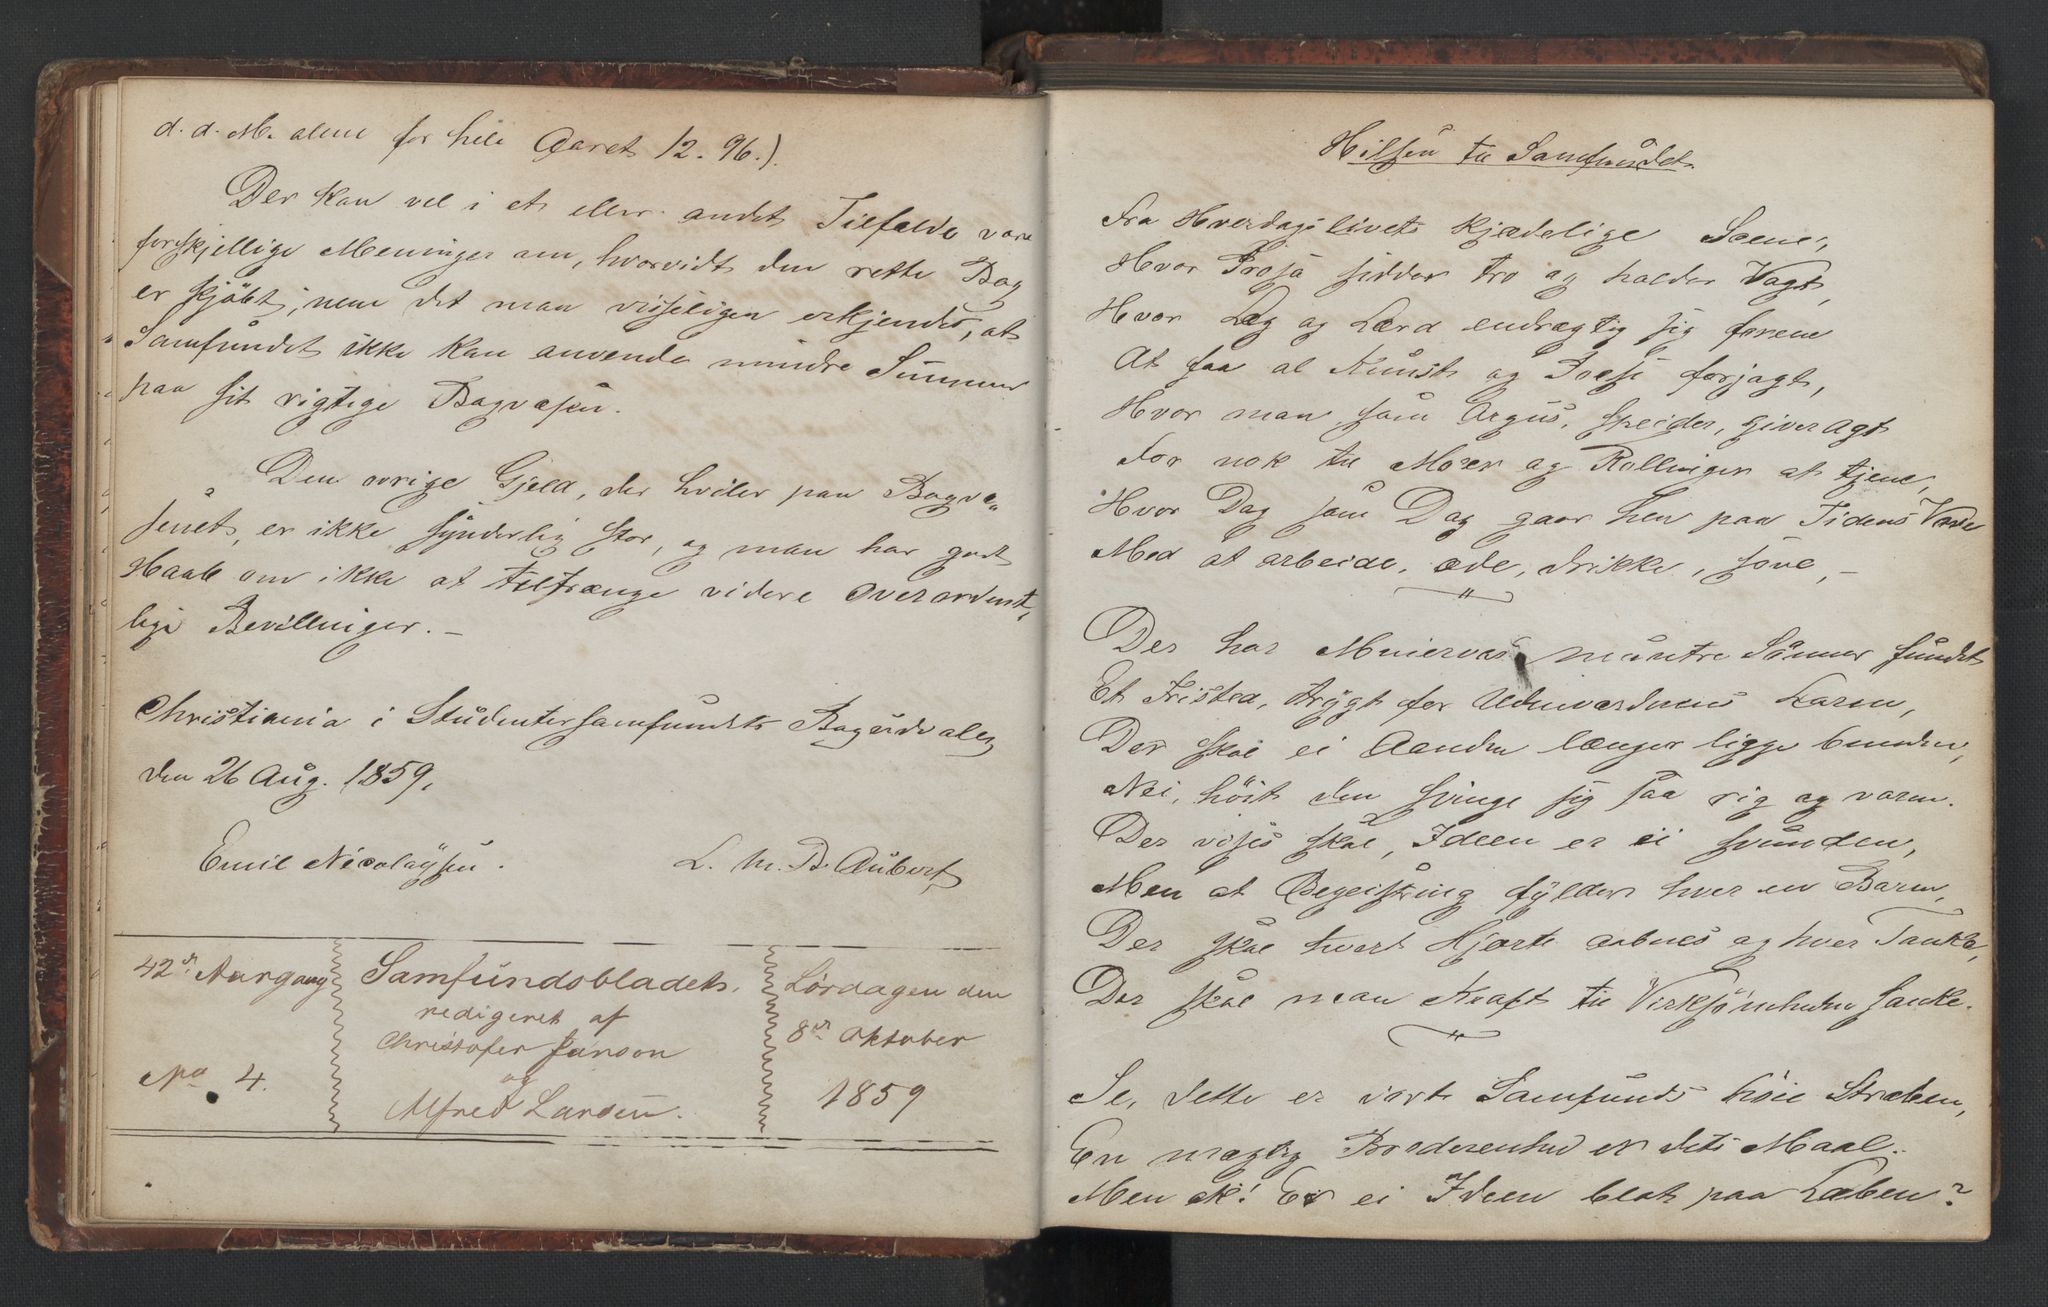 d. d. M. alene for hele Aaret 12. 96.).
Der kan vel i et eller andet Tilfælde være
forskjellige Meninger om, hvorvidt den rette Bog
er kjöbt; men det maa visseligen erkjendes, at
Samfundet ikke kan anvende mindre Summer
paa sit vigtige Bogvæsen.
Den øvrige Gjeld, der hviler paa Bogvæ„
senet, er ikke synderlig stor, og man har godt
Haab om ikke at tiltrænge videre overordent„
lige Bevillinger. —
Christiania i Studentersamfundets Bogudvalg
den 26 Aug. 1859.
Emil Nicolaÿsen. L. M. B. Aubert
42de Aargang
Samfundsbladet.
Lørdagen den
redigeret af
8de Oktober
Christofer Janson
No 4.
og
1859
Alfred Larsen.
Hilsen til Samfundet.
Fra Hverdagslivets kjædelige Scene,
Hvor Prosa sidder tro og holder Vagt,
Hvor Læg og Lærd endrægtig sig forene
At faa al Kunst og Poesi forjagt,
Hvor man som Argus, speider, giver agt
For nok til Moser og Rollinger at tjene,
Hvor Dag som Dag gaar hen paa Tidens Vove
Med at arbeide, æde, drikke, sove, —
Der har Minervas muntre Sönner fundet
Et Fristed, trygt for Udenverdenens Larm,
Der skal ei Aanden længer ligge bunden,
Nei, höit den svinge sig saa rig og varm.
Der vises skal, Ideen er ei svunden,
Men at Begeistring fylder hver en Barm,
Der skal hvert Hjerte aabnes og hver Tanke,
Der skal man Kraft til Virksomheden sanke.
Se, dette er vort Samfunds höie Stræben,
En mægtig Broderenhed er dets Maal.
Men ak! Er ei Ideen blot paa Læben?